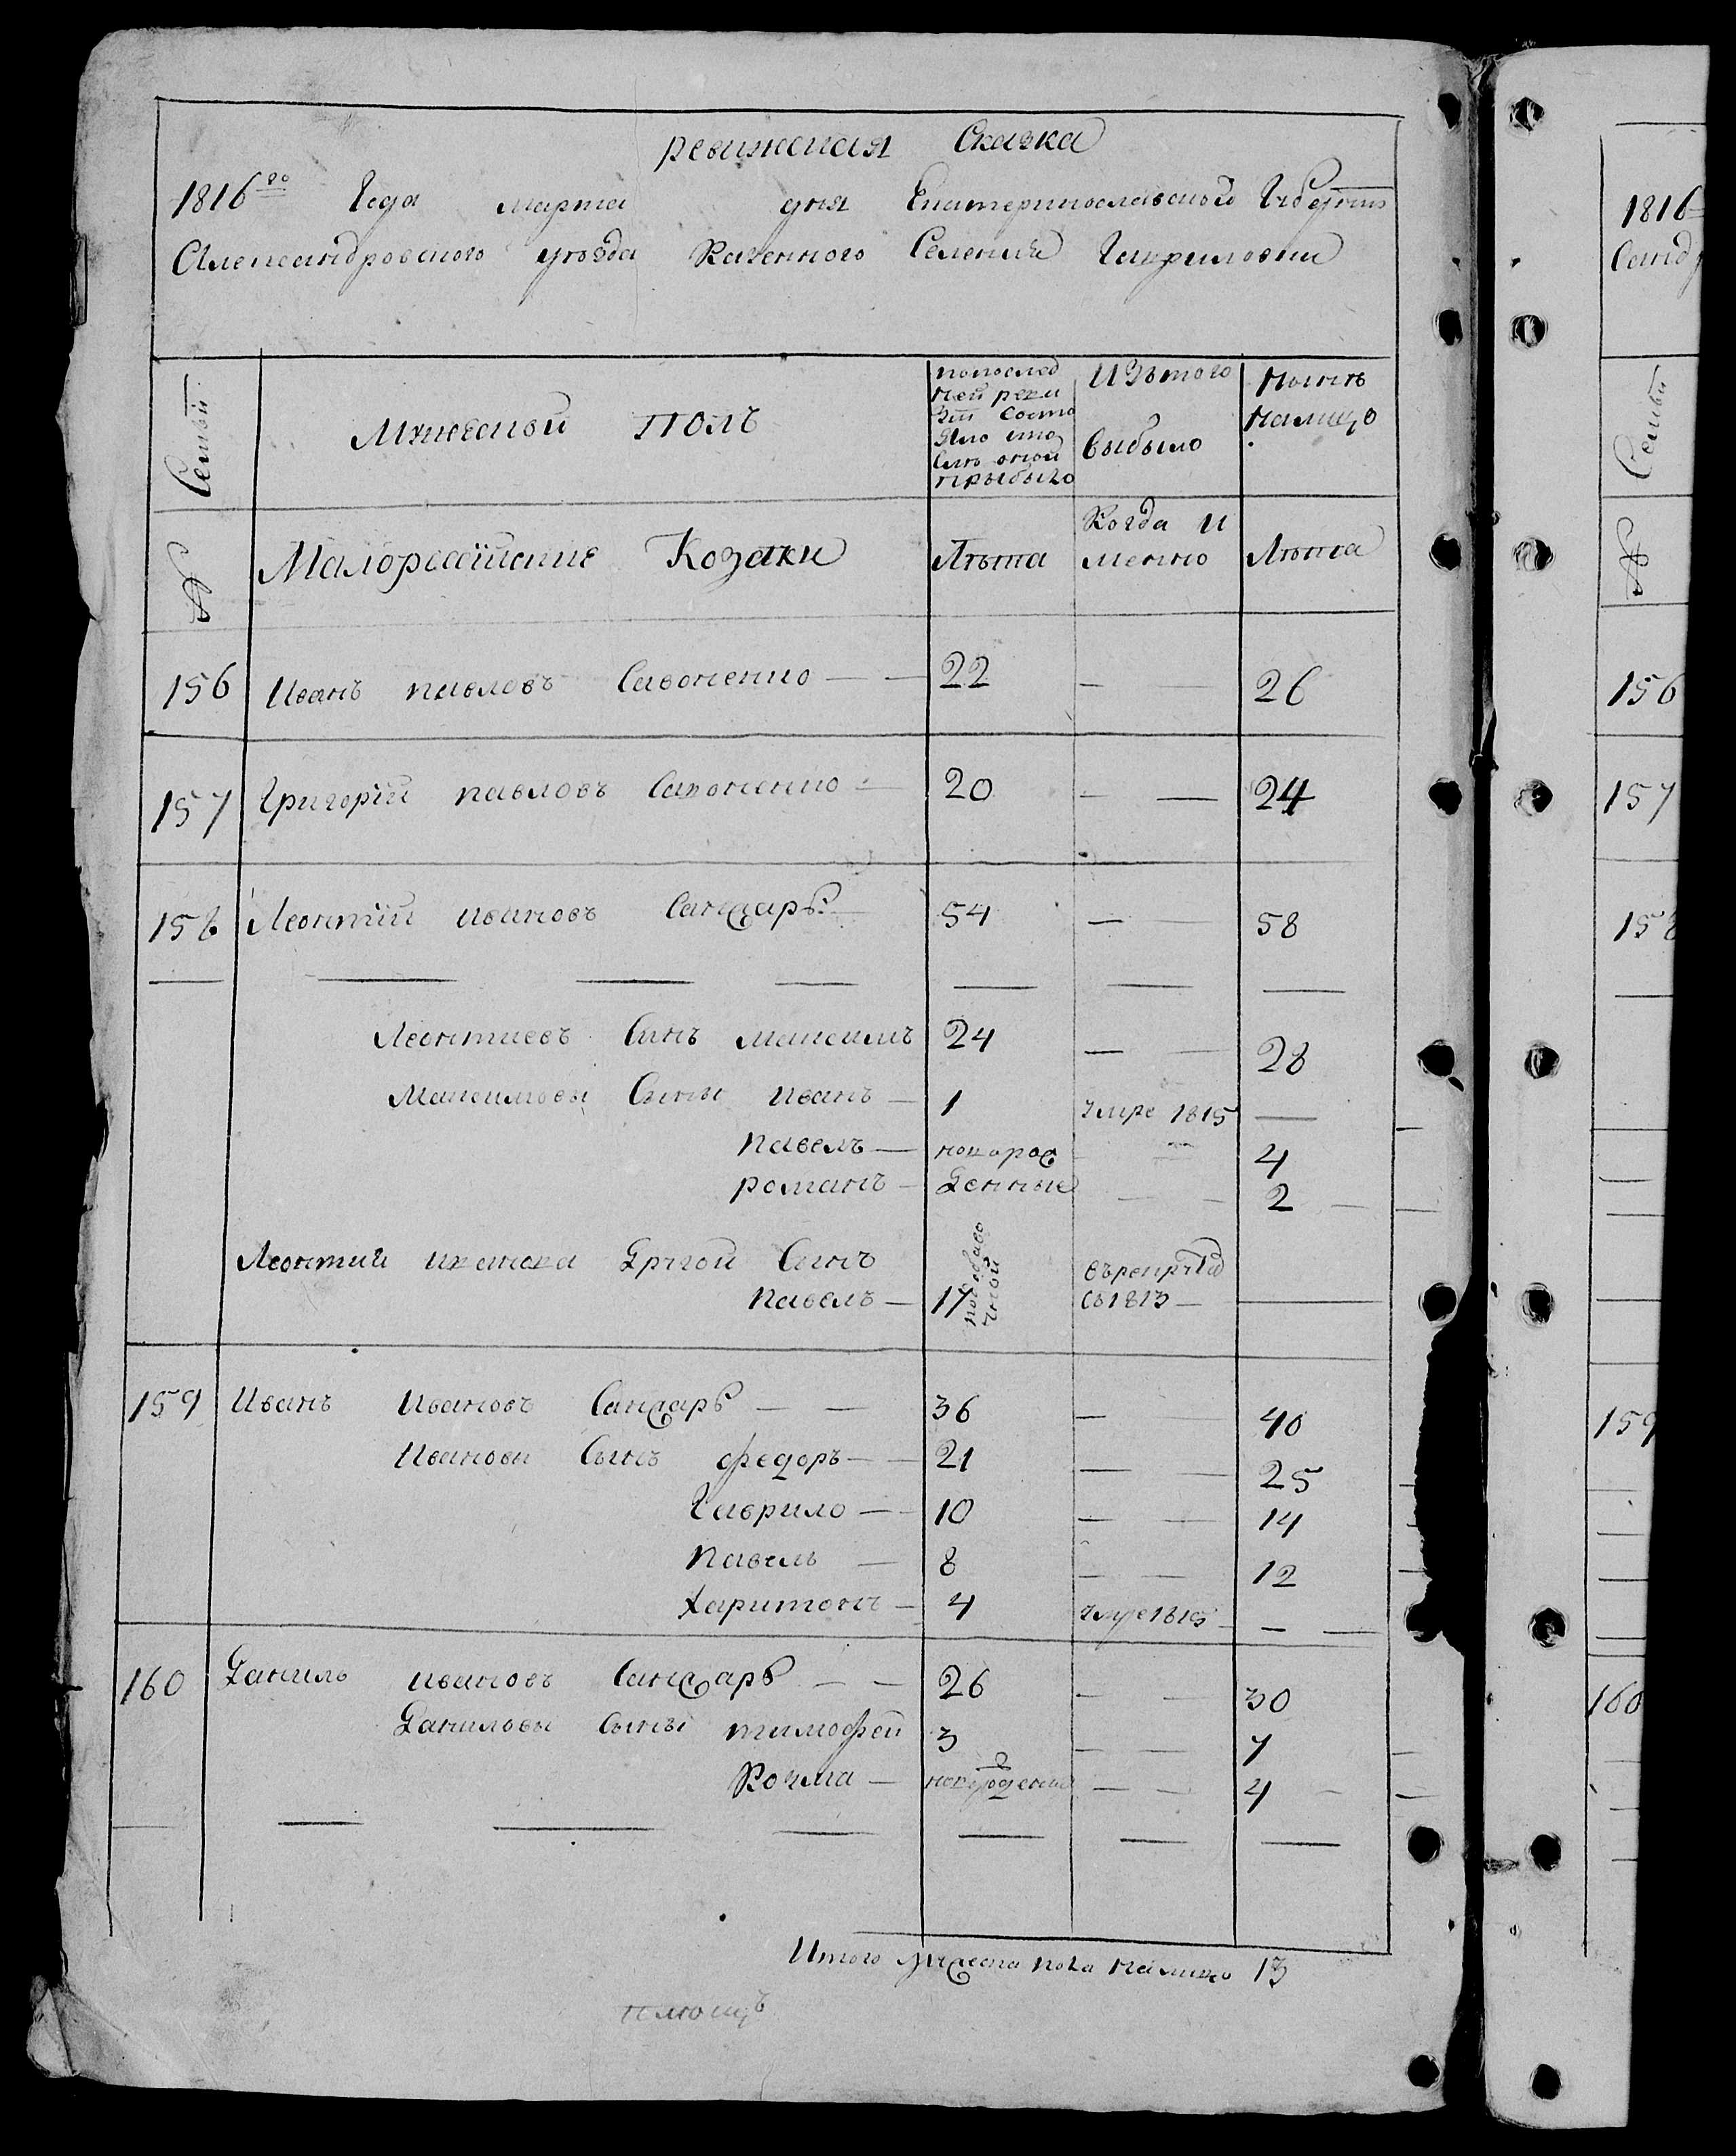 ревижская Сказка
1816го Года марта дня Екатеринославской Губерни
Александровского уезда Казенного Селения Гавриловки
Семьи
Мужеской полъ
попослед
ней реви
зіи Состо
яло ипо
слѣ оной
прыбыло
Изътого
выбыло
Нынѣ
налицо
№
Малоросійские Козаки
Лѣта
Когда и
менно
Лѣта
156 Иванъ павловъ Савоненко — — 22 — — 26
157 Григорій павловъ Савоненко — 20 — — 24
158 Леонтій ивановъ Санжаръ — 54 — — 58
Леонтиевъ Синъ максимъ 24 — — 28
Максимовы Сыны иванъ — 1 умре 1815 —
павелъ — новорож — 4
романъ — денные — — 2
Леонтия иванова Другой Синъ
павелъ — 17 върекрута
съ1813 —
159 Иванъ Ивановъ Санжаръ — — 36 — — 40
Ивановы Сынъ федоръ — — 21 — — 25
Гаврило — — 10 — — 14
павелъ — 8 — — 12
Харитонъ — 4 умре1815 — —
160 Данило ивановъ Санжаръ — — 26 — — 30
Даниловы Сыны тимофей 3 — — 7
Козма — новорожденны — — 4
Итого мужеска пола налицо 13
1816
Санд
Семьи
№
156
157
158
159
160